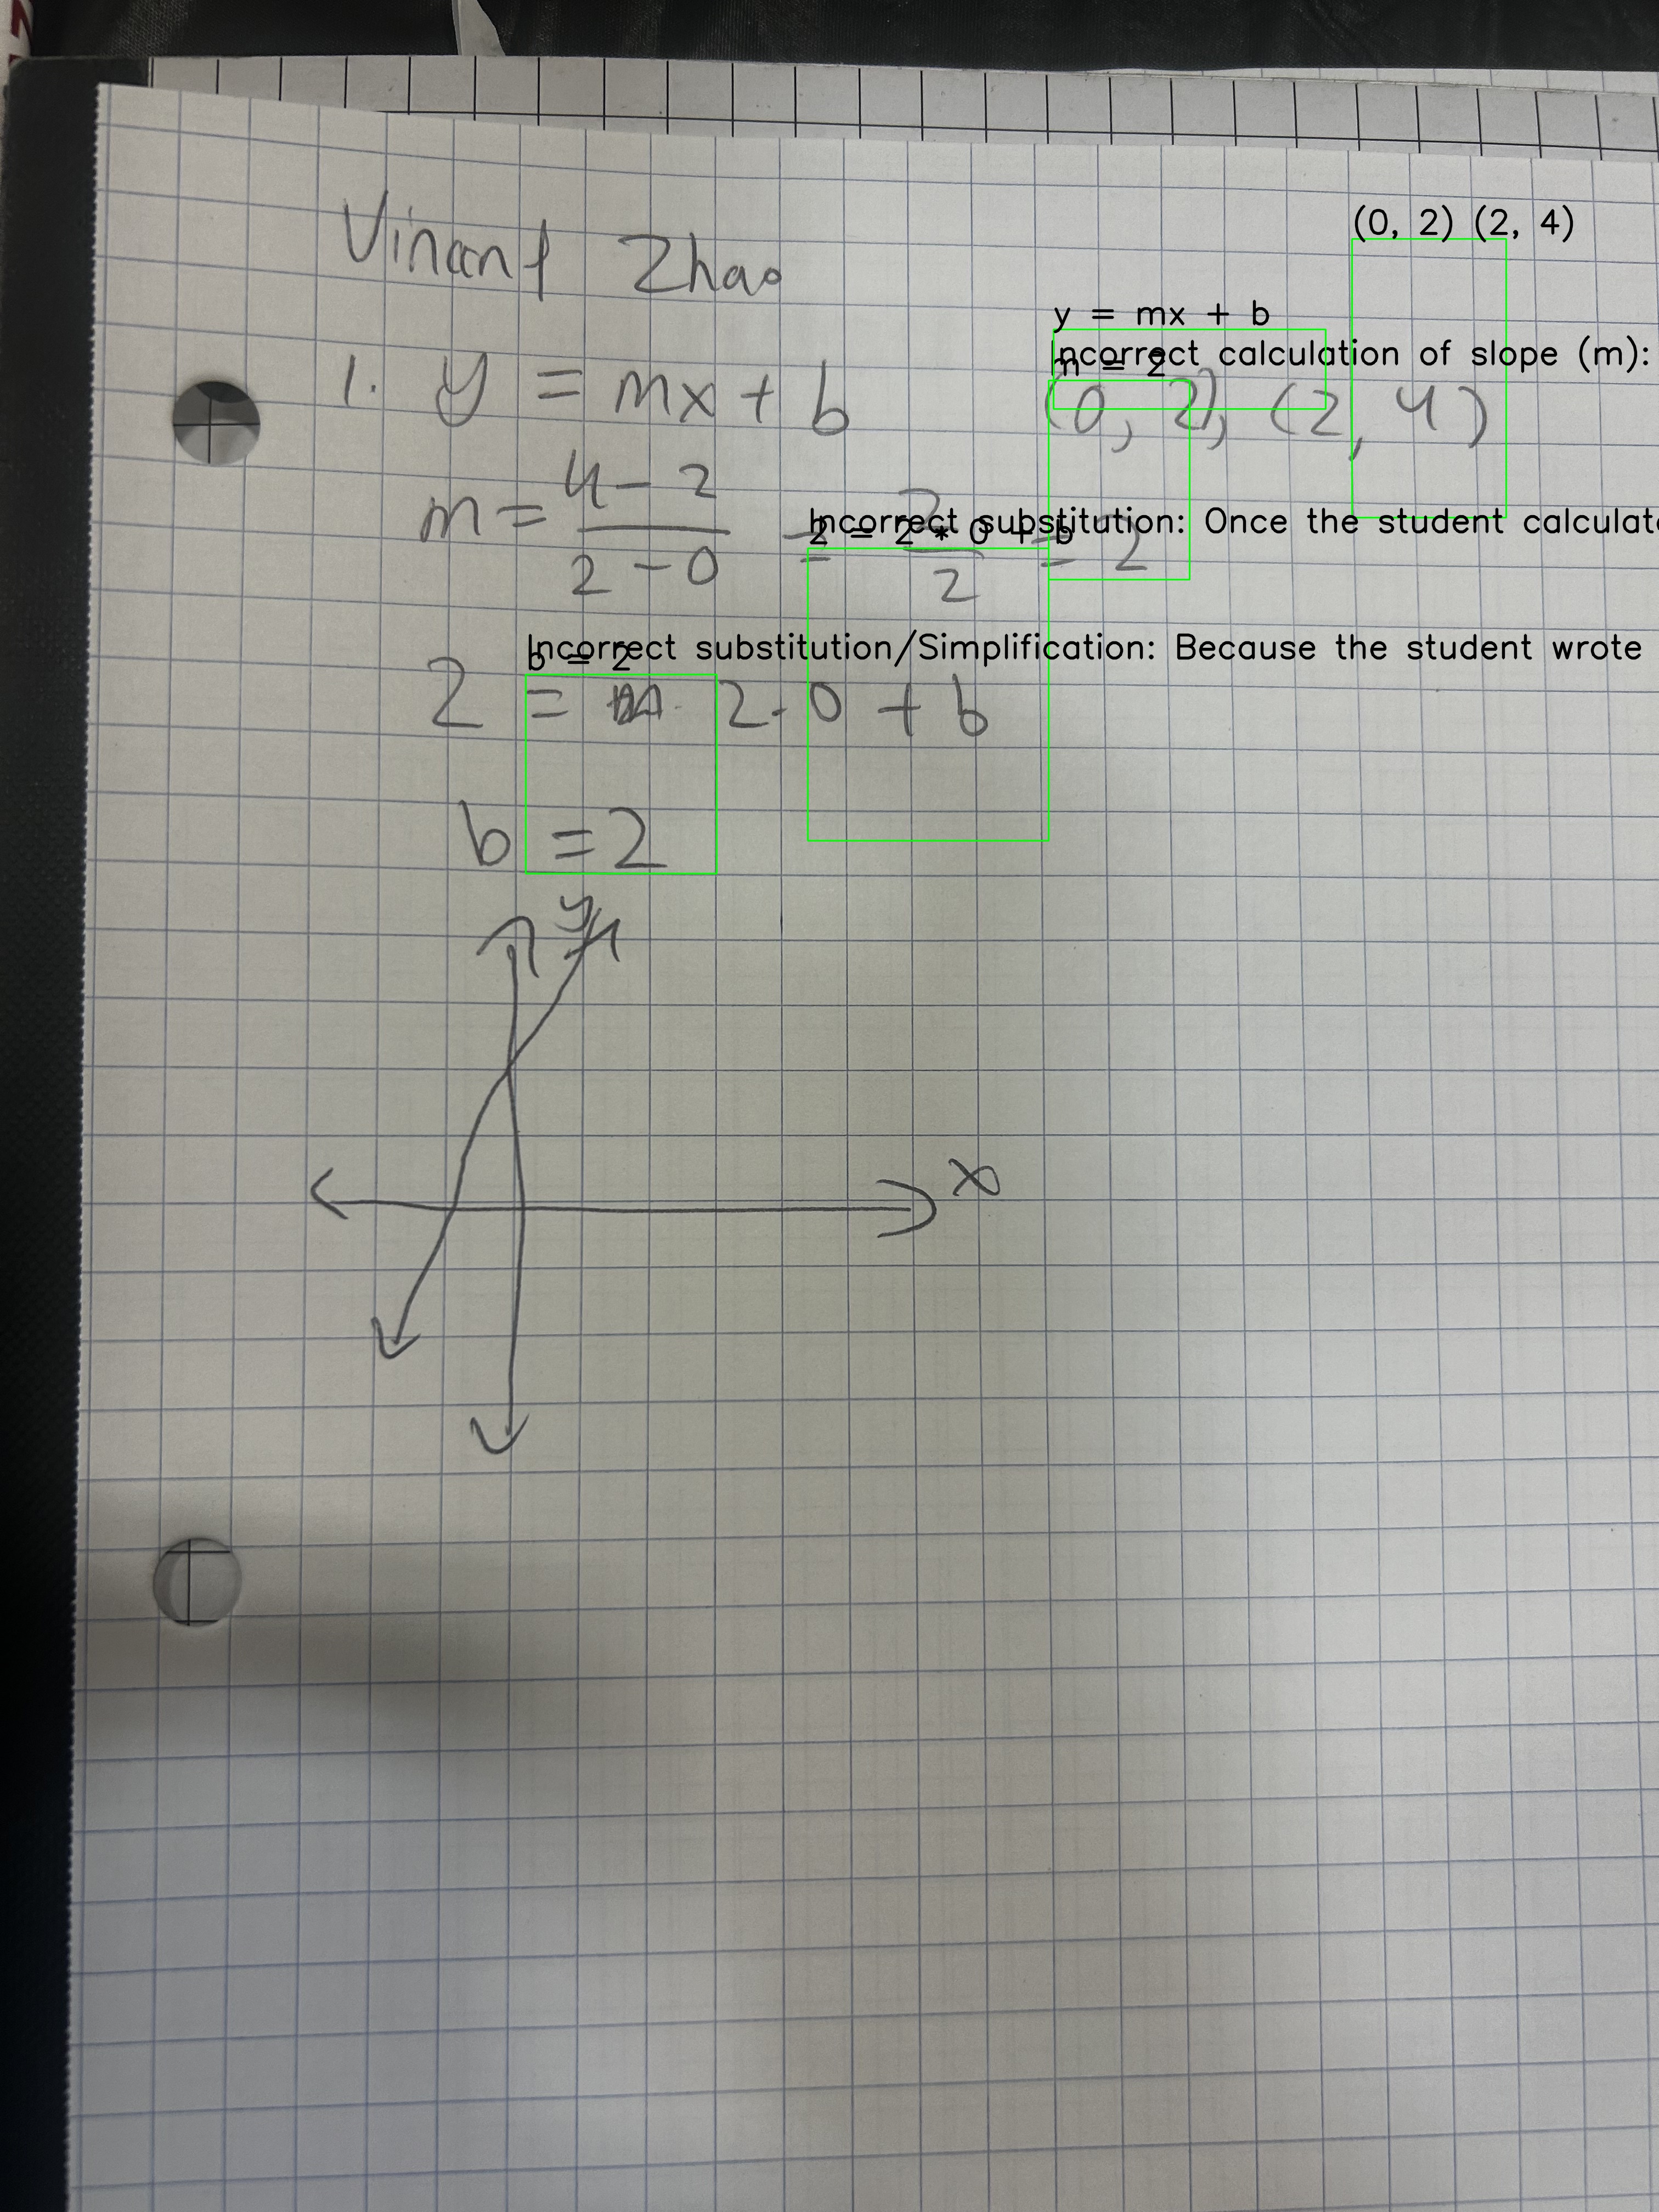 Vincent Zhao
(0, 2) (2, 4)
y = mx + b
Incorrect calculation of slope (m):
m = 2
1. y = mx + b (0, 2), (2, 4)
m = 4 - 2 / 2 - 0 = 2 / 2 = 2
Incorrect substitution: Once the student calculat
2 = 2 * 0 + b
Incorrect substitution/Simplification: Because the student wrote
b = 2
2 = 2 · 0 + b
b = 2
y
x